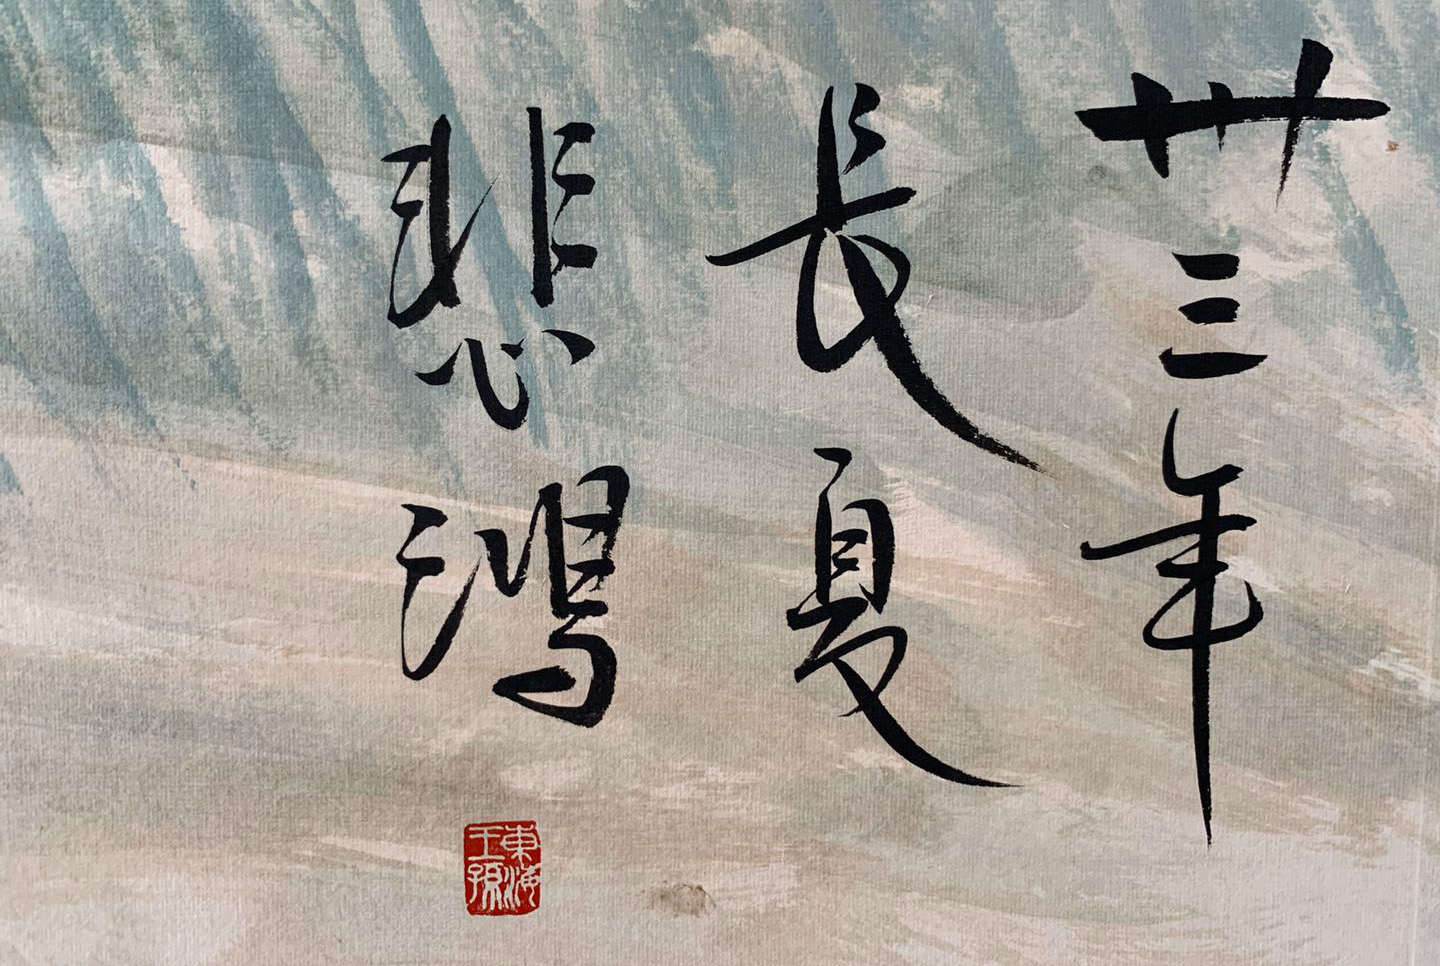 卅三年
長夏
悲鴻
東海王孫